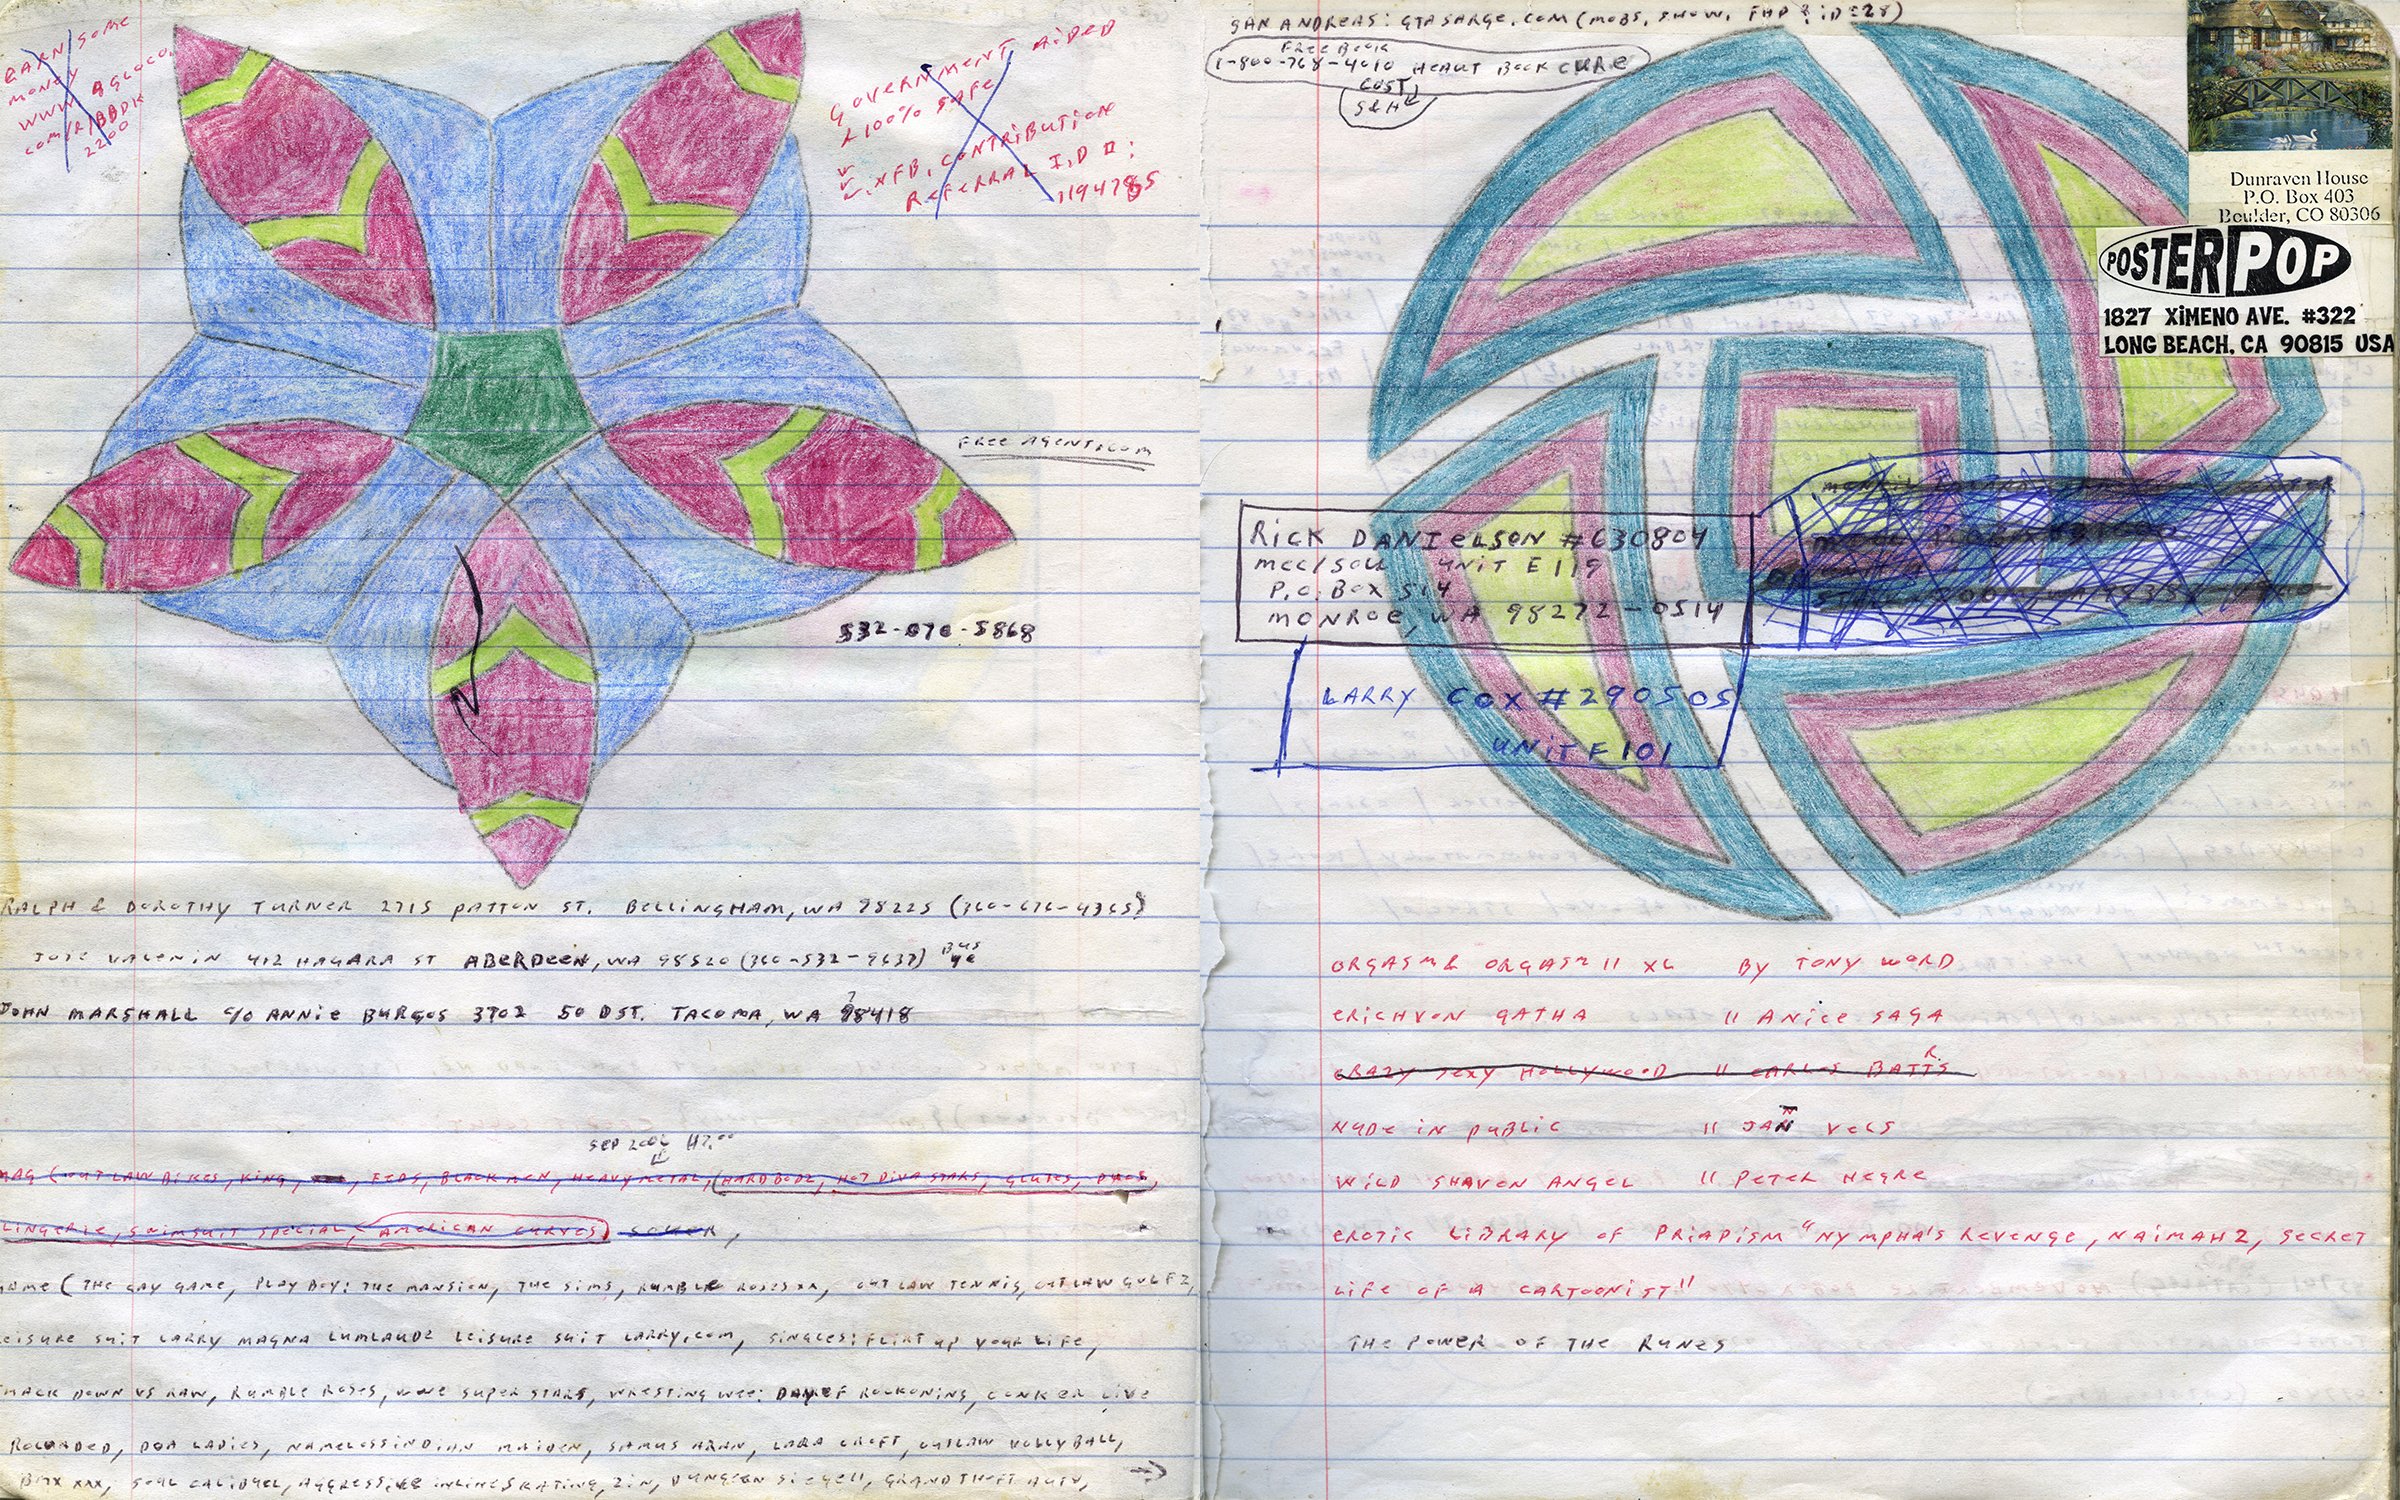 EARN SOME
MONEY
WWW AGLOCO.
COM/R/BBDK
2200
GOVERNMENT AIDED
& 100% SAFE
XFB. CONTRIBUTION
REFERRAL I.D #:
11947865
FREE AGENT.COM
532-070-5868
RALPH & DOROTHY TURNER 2715 PATTON ST. BELLINGHAM, WA 98225 (360-676-4365)
412 HAGARA ST ABERDEEN, WA 98520 (360-532-9637) BUS
JOHN MARSHALL C/O ANNIE BURGOS 3702 50 DST. TACOMA, WA 98418
SEP 2006
MAG (OUTLAW BIKES, KING, FEDS, BLACK MEN, HEAVY METAL, (HARDBODZ, HOT DIVA STARS, GLUTES,
LINGERIE, SWIMSUIT SPECIAL, AMERICAN CURVES)
GAME (THE GAY GAME, PLAYBOY: THE MANSION, THE SIMS, RUMBLE ROSES XX, OUTLAW TENNIS, OUTLAW GOLF 2,
LEISURE SUIT LARRY MAGNA LUMLAUDE LEISURE SUIT LARRY.COM, SINGLES: FLIRT UP YOUR LIFE,
SMACK DOWN VS RAW, RUMBLE ROSES, WWE SUPER STARS, WRESTING WEE: DAY OF RECKONING, CONKER LIVE
RELOADED, DOA LADIES, NAMELESS INDIAN MAIDEN, SAMUS ARAN, LARA CROFT, OUTLAW VOLLYBALL,
BMX XXX, SOUL CALIBUEL, AGGRESSIVE INLINE SKATING, DUNGEON SIEGE II, GRAND THEFT AUTO,
SAN ANDREAS: GTASARGE.COM (MOBS, SHOW, FHP ? iD=28)
FREE BOOK
1-800-768-4010 HEALIT BOOK CURE
COST
S&H
Dunraven House
P.O. Box 403
Boulder, CO 80306
POSTER POP
1827 XiMENO AVE. #322
LONG BEACH, CA 90815 USA
RICK DANIELSON #630804
MCC/SOU UNIT E 119
P.O. BOX 514
MONROE, WA 98272-0514
LARRY COX #290505
UNIT E 101
ORGASM & ORGASM II XL BY TONY WORD
ERICHVON GATHA " ANICE SAGA
CRAZY SEXY HOLLYWOOD " CARLOS BATTS
NUDE IN PUBLIC " JAN VELS
WILD SHAVEN ANGEL " PETER HEGRE
EROTIC LIBRARY OF PRIAPISM "NYMPHA'S REVENGE, NAIMAH 2, SECRET
LIFE OF A CARTOONIST"
THE POWER OF THE RUNES